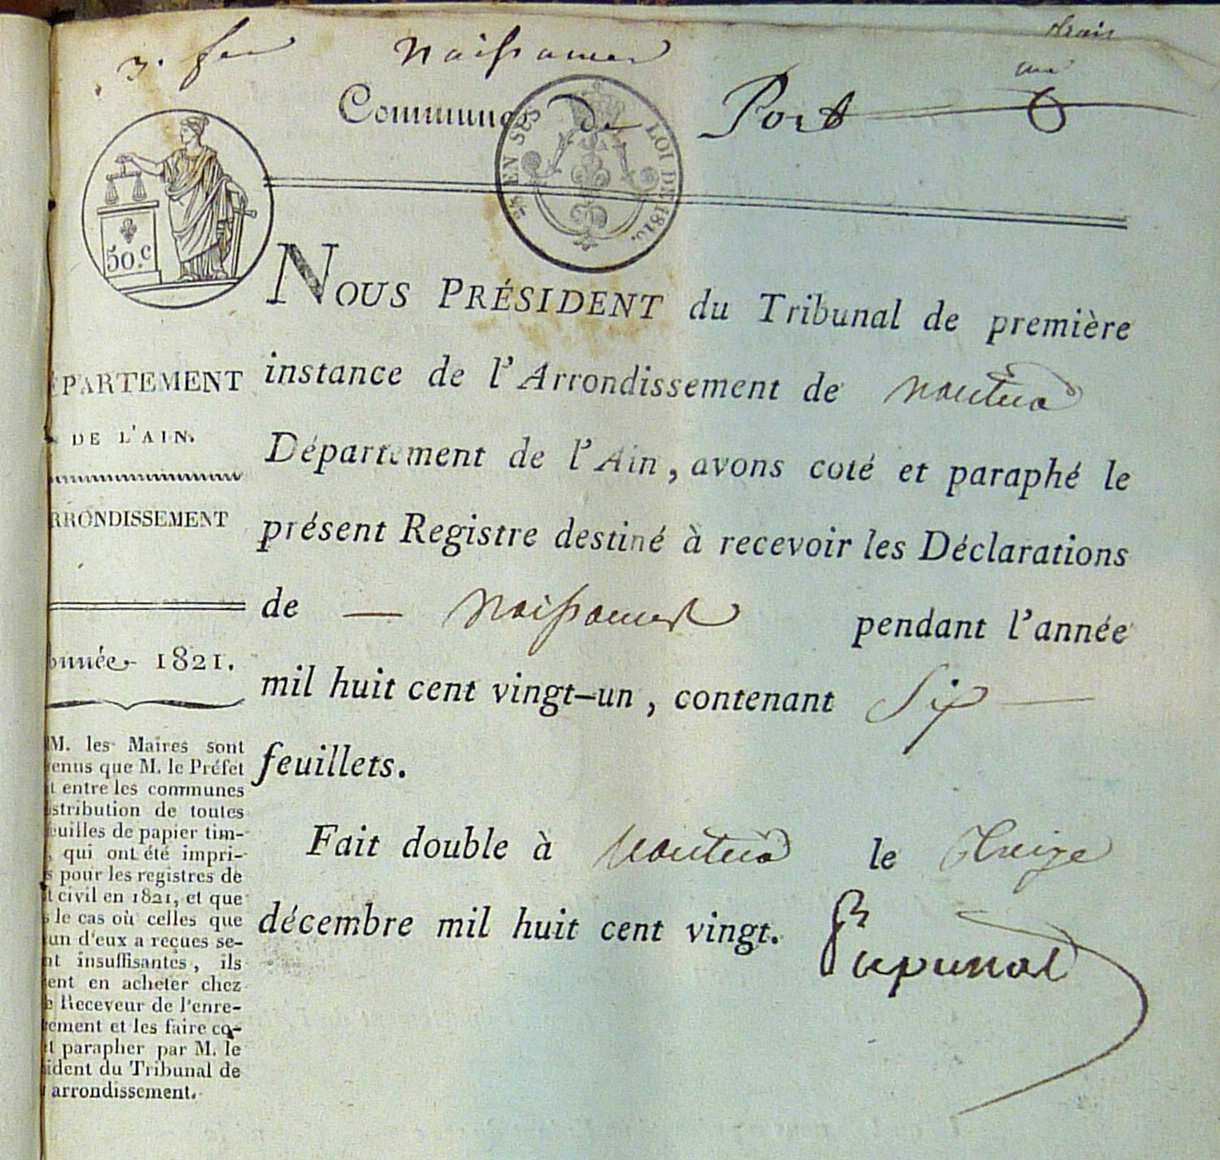 Naissances
Commune de Port
EN SUS
LOI DE 1816.
50.c
NOUS PRÉSIDENT du Tribunal de première
instance de l'Arrondissement de Nantua
Département de l'Ain, avons coté et paraphé le
présent Registre destiné à recevoir les Déclarations
de — Naissances pendant l'année
mil huit cent vingt-un, contenant Six —
feuillets.
Fait double à Nantua le Treize
décembre mil huit cent vingt.
ÉPARTEMENT
DE L'AIN.
RRONDISSEMENT
nnée 1821.
M. les Maires sont
enus que M. le Préfet
t entre les communes
stribution de toutes
euilles de papier tim-
, qui ont été impri-
s pour les registres de
t civil en 1821, et que
s le cas où celles que
un d'eux a reçues se-
nt insuffisantes, ils
ent en acheter chez
e Receveur de l'enre-
ement et les faire co-
t parapher par M. le
ident du Tribunal de
arrondissement.